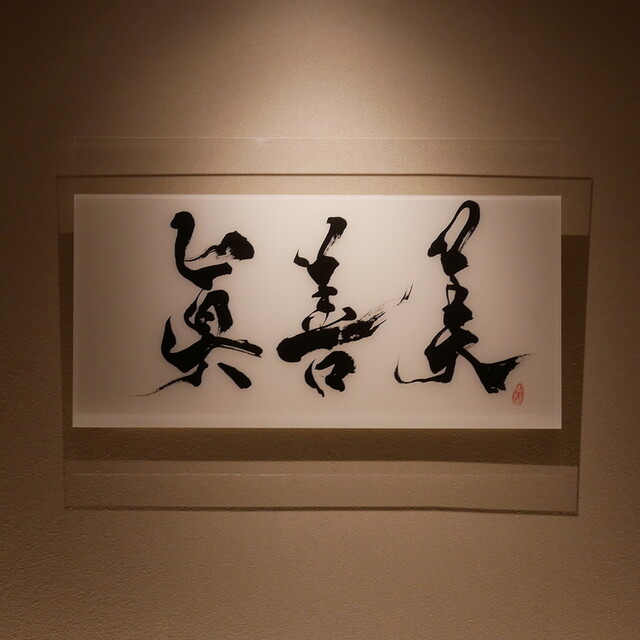 真善美